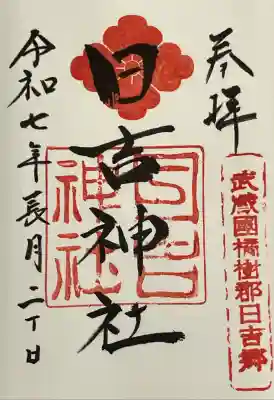 奉拝
武蔵國橘樹郡日吉郷
日吉神社
日吉神社
令和七年長月二丁日